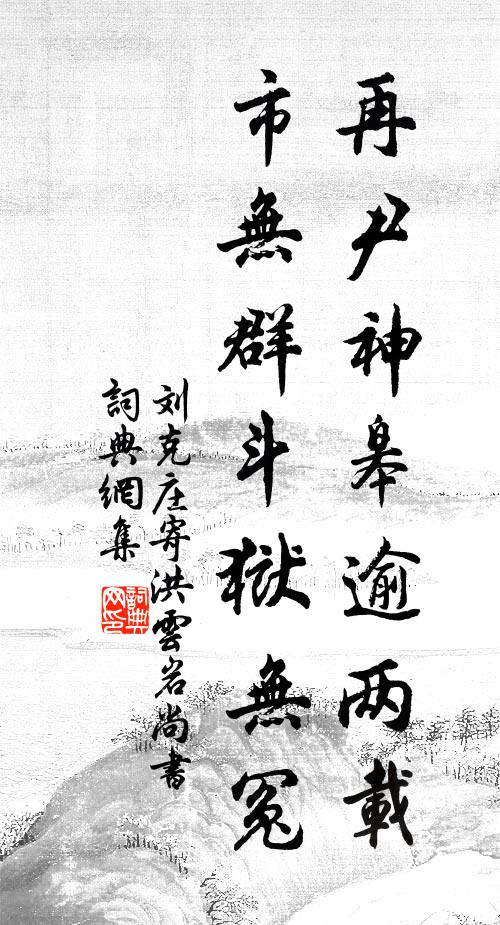 再尹神皋逾两載
市無群斗獄無冤
刘克庄寄洪雲岩尚書
詞典網集
詞典网印